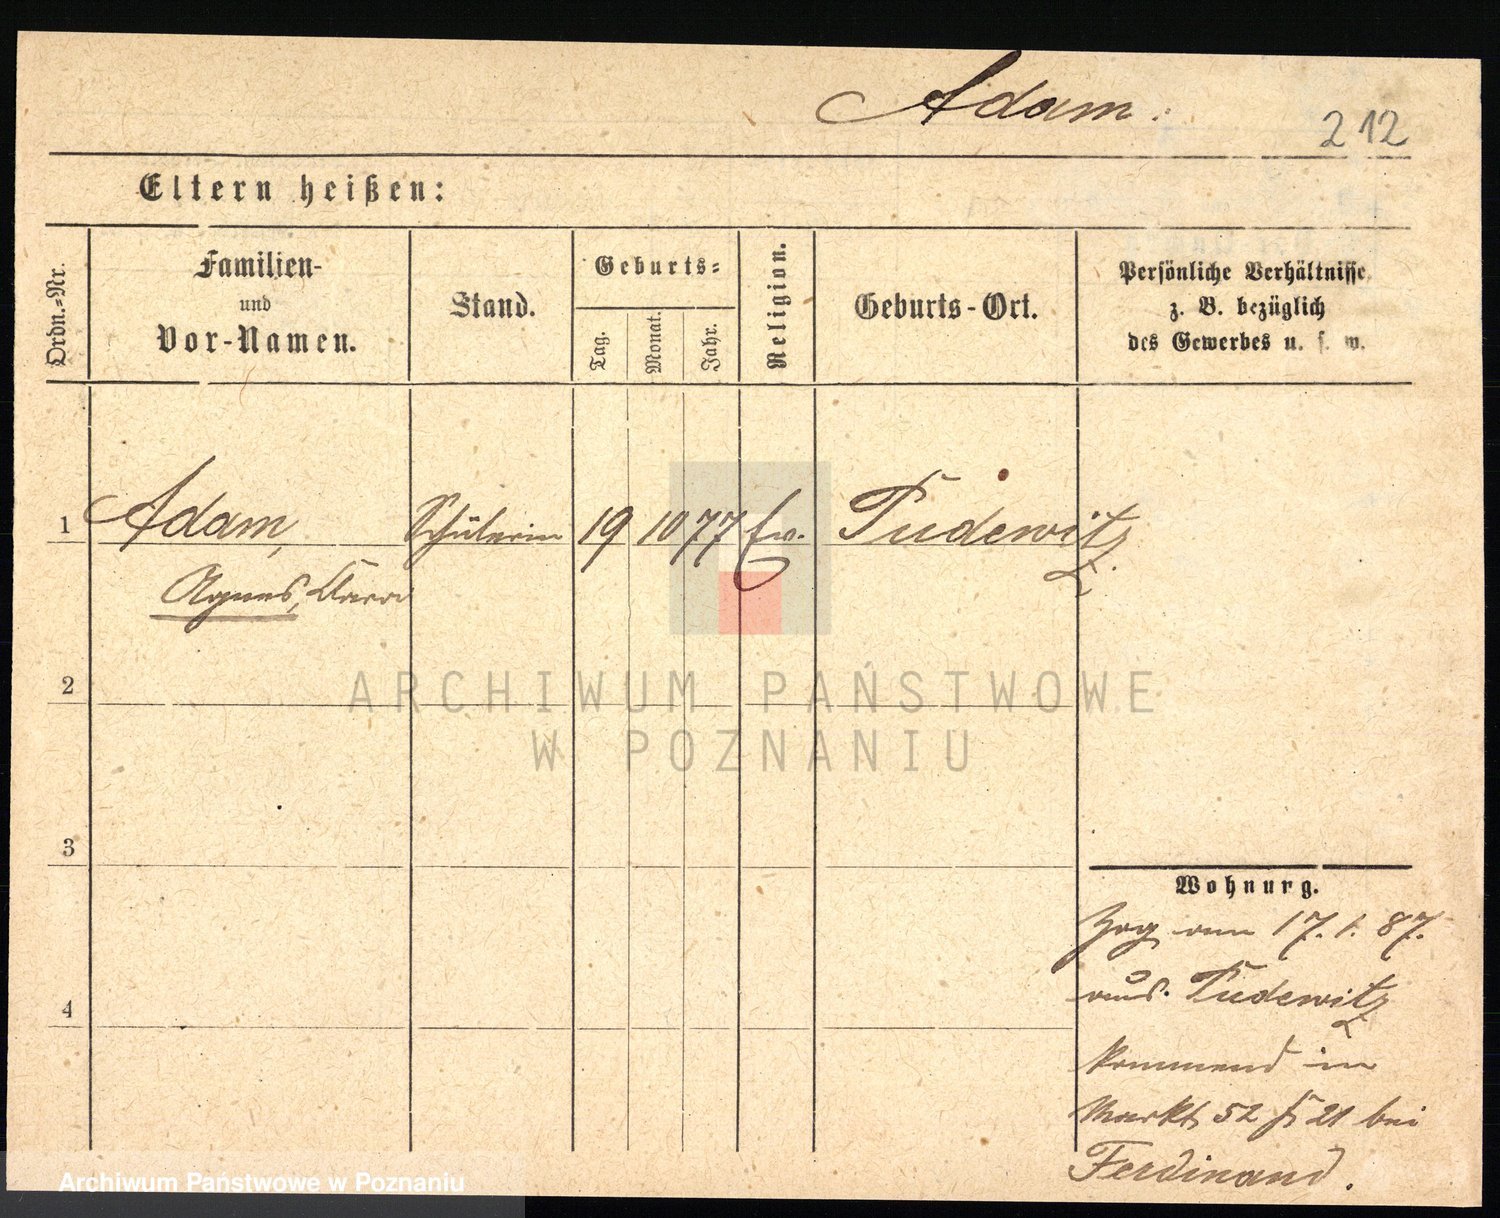 Adam.
212
Eltern heißen:
Ordn.-Nr.
Familien-
und
Vor-Namen.
Stand.
Geburts-
Tag.
Monat.
Jahr.
Religion.
Geburts-Ort.
Persönliche Verhältnisse
z. B. bezüglich
des Gewerbes u. s. w.
1 Adam, Schülerin 19 10 77 Ev. Pudewitz.
Agnes, Clara
2
ARCHIWUM PAŃSTWOWE
W POZNANIU
3
Wohnung.
Zog am 17. 1. 87.
aus Pudewitz
4
kommend in
Markt 52 21 bei
Ferdinand.
Archiwum Państwowe w Poznaniu